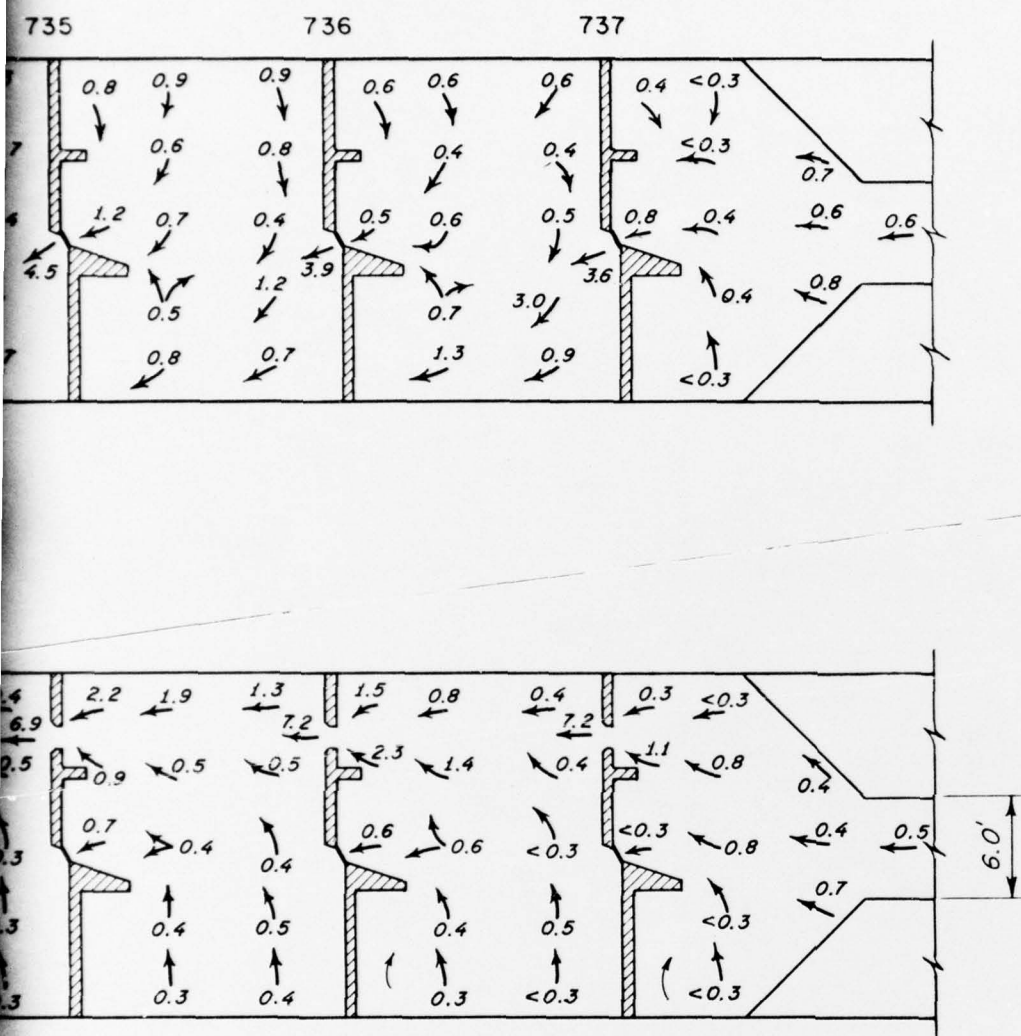 735 736 737
0.8 0.9 0.9 0.6 0.6 0.6 0.4 <0.3
7 0.6 0.8 0.4 0.4 <0.3 0.7
4 1.2 0.7 0.4 0.5 0.6 0.5 0.8 0.4 0.6 0.6
4.5 3.9 3.6
0.5 1.2 0.7 3.0 0.4 0.8
7 0.8 0.7 1.3 0.9 <0.3
.4 2.2 1.9 1.3 1.5 0.8 0.4 0.3 <0.3
6.9 7.2 7.2
0.5 0.9 0.5 0.5 2.3 1.4 0.4 1.1 0.8 0.4
.3 0.7 0.4 0.4 0.6 0.6 <0.3 <0.3 0.8 0.4 0.5 6.0'
.3 0.4 0.5 0.4 0.5 <0.3 0.7
.3 0.3 0.4 0.3 <0.3 <0.3